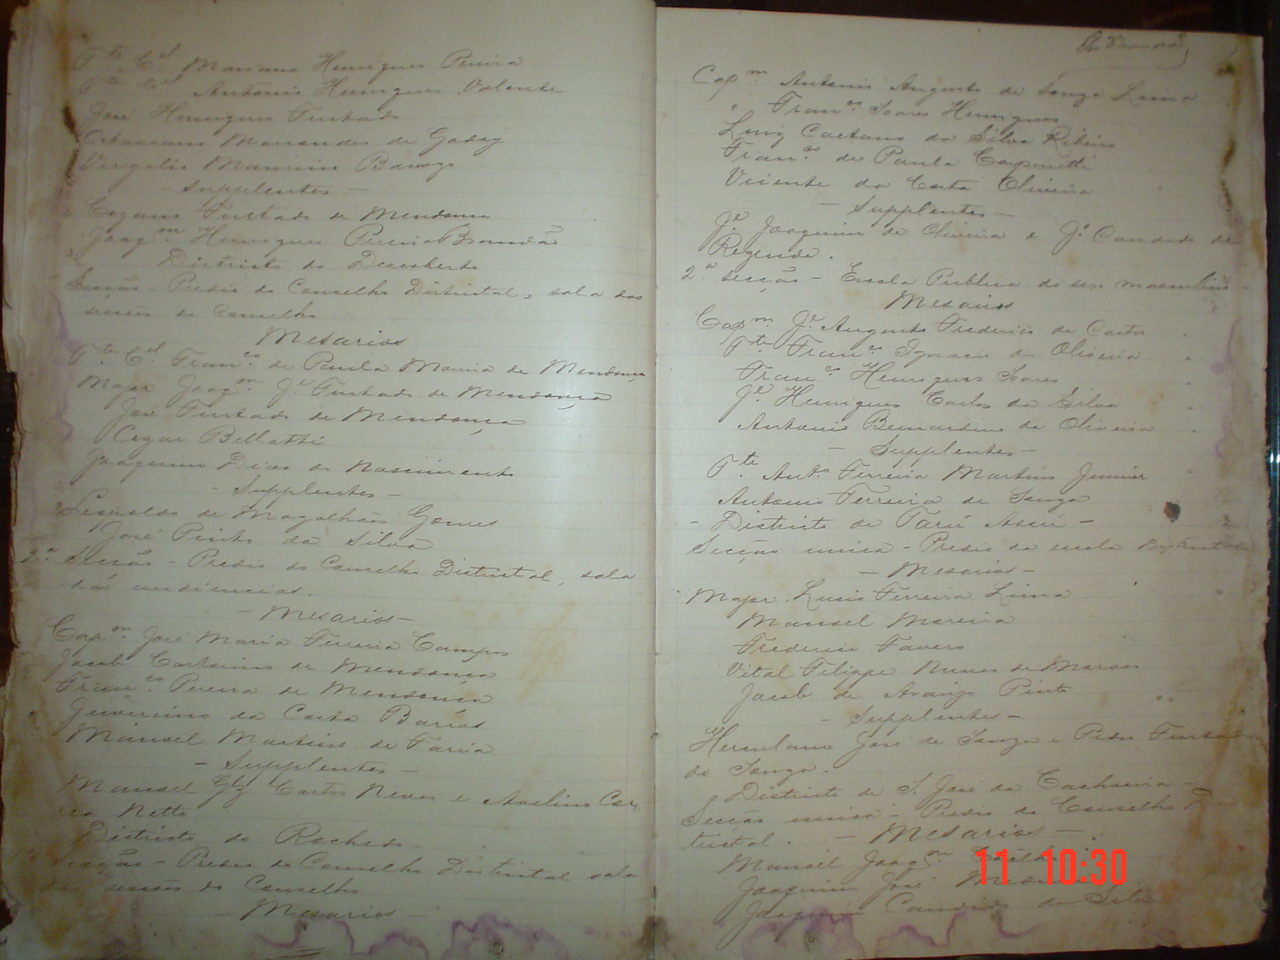 Tte Cel Mariano Henriques Pereira
Tte Cel Antonio Henriques Valente
José Henriques Furtado
de Godoy
Virgilio
- Supplentes -
Furtado de Mendonça
Joaqm Henriques Pereira Brandão
Districto do Descoberto
Secção - Predio do Conselho Districtal, sala das
sessões do Conselho
Mesarios
Tte Cel Franco de Paula de Mendonça
Major Joaqm Je Furtado de Mendonça
José Furtado de Mendonça
Cezar Bellatti
Joaquim Dias do Nascimento
- Supplentes -
Leopoldo de Magalhães Gomes
José Pinto da Silva
2a Secção - Predio do Conselho Districtal, sala
das audiencias.
- Mesarios -
Capm José Maria Ferreira Campos
Jacob de Mendonça
Franco Pereira de Mendonça
Juvercino da Costa Barros
Manoel Martins de Faria
- Supplentes -
Manoel Glz Castro Neves e Avelino Cor
rea Netto
Districto do Rochedo
Secção - Predio do Conselho Districtal sala
das sessões do Conselho
- Mesarios -
Capm Antonio Augusto de Souza Lima
" Franco Soares Henriques
Luiz Caetano da Silva Ribeiro
Franco de Paula
Vicente da Costa Oliveira
- Supplentes -
Je Joaquim de Oliveira e Je Candido de
Rezende.
2a secção - Escola Publica do sexo masculino
Mesarios
Capm Je Augusto Frederico de Castro
Tte Franco Ignacio de Oliveira
Franco Henriques Soares
Je Henriques Carlos da Silva
Antonio Bernardino de Oliveira
- Supplentes -
Tte Anto Ferreira Martins Junior
Antonio Ferreira de Souza
- Districto de Tarú Assú -
Secção unica - Predio da escola Districtal
- Mesarios -
Major Lucio Ferreira Lima
Manoel Moreira
Frederico
Vital Filippe Nunes de Moraes
Jacob de Araujo Pinto
- Supplentes -
Herculano José de Souza e Pedro Furtado
de Souza.
Districto de S. José da Cachoeira -
Secção unica - Predio do Conselho Dis
trictal. - Mesarios -
Manoel Joaqm
Joaquim José
Joaquim da Silva
11 10:30